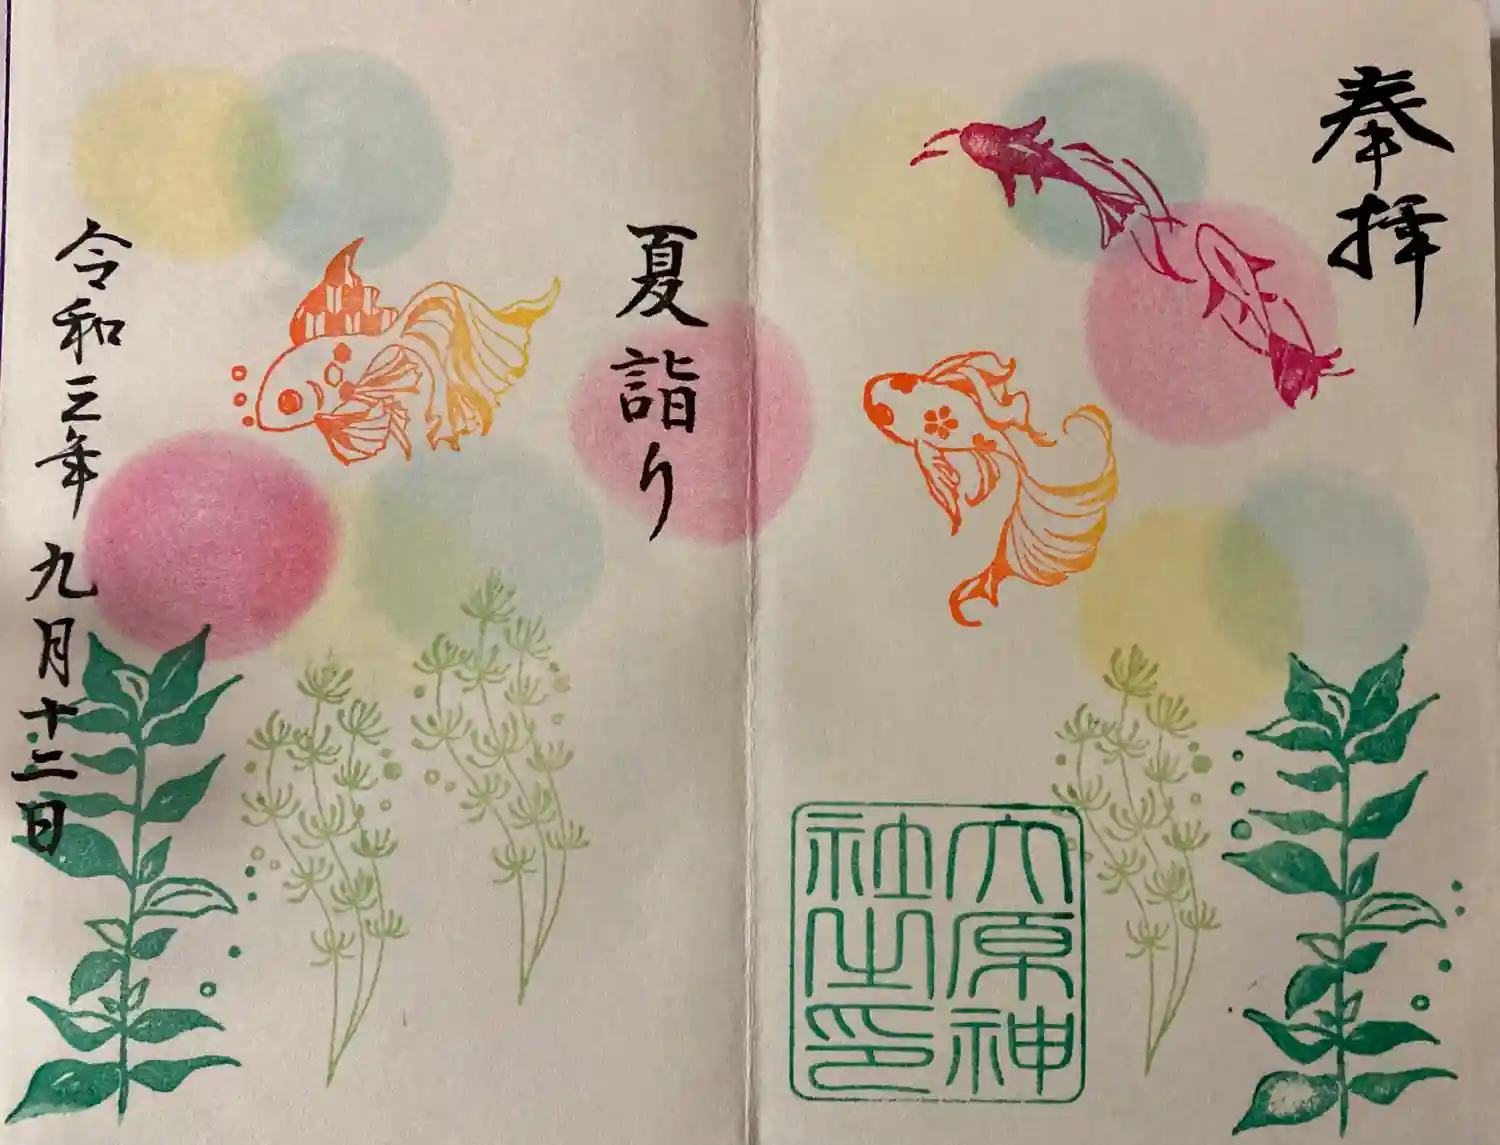 奉拝
大原神
社之印
夏詣り
令和三年九月十二日